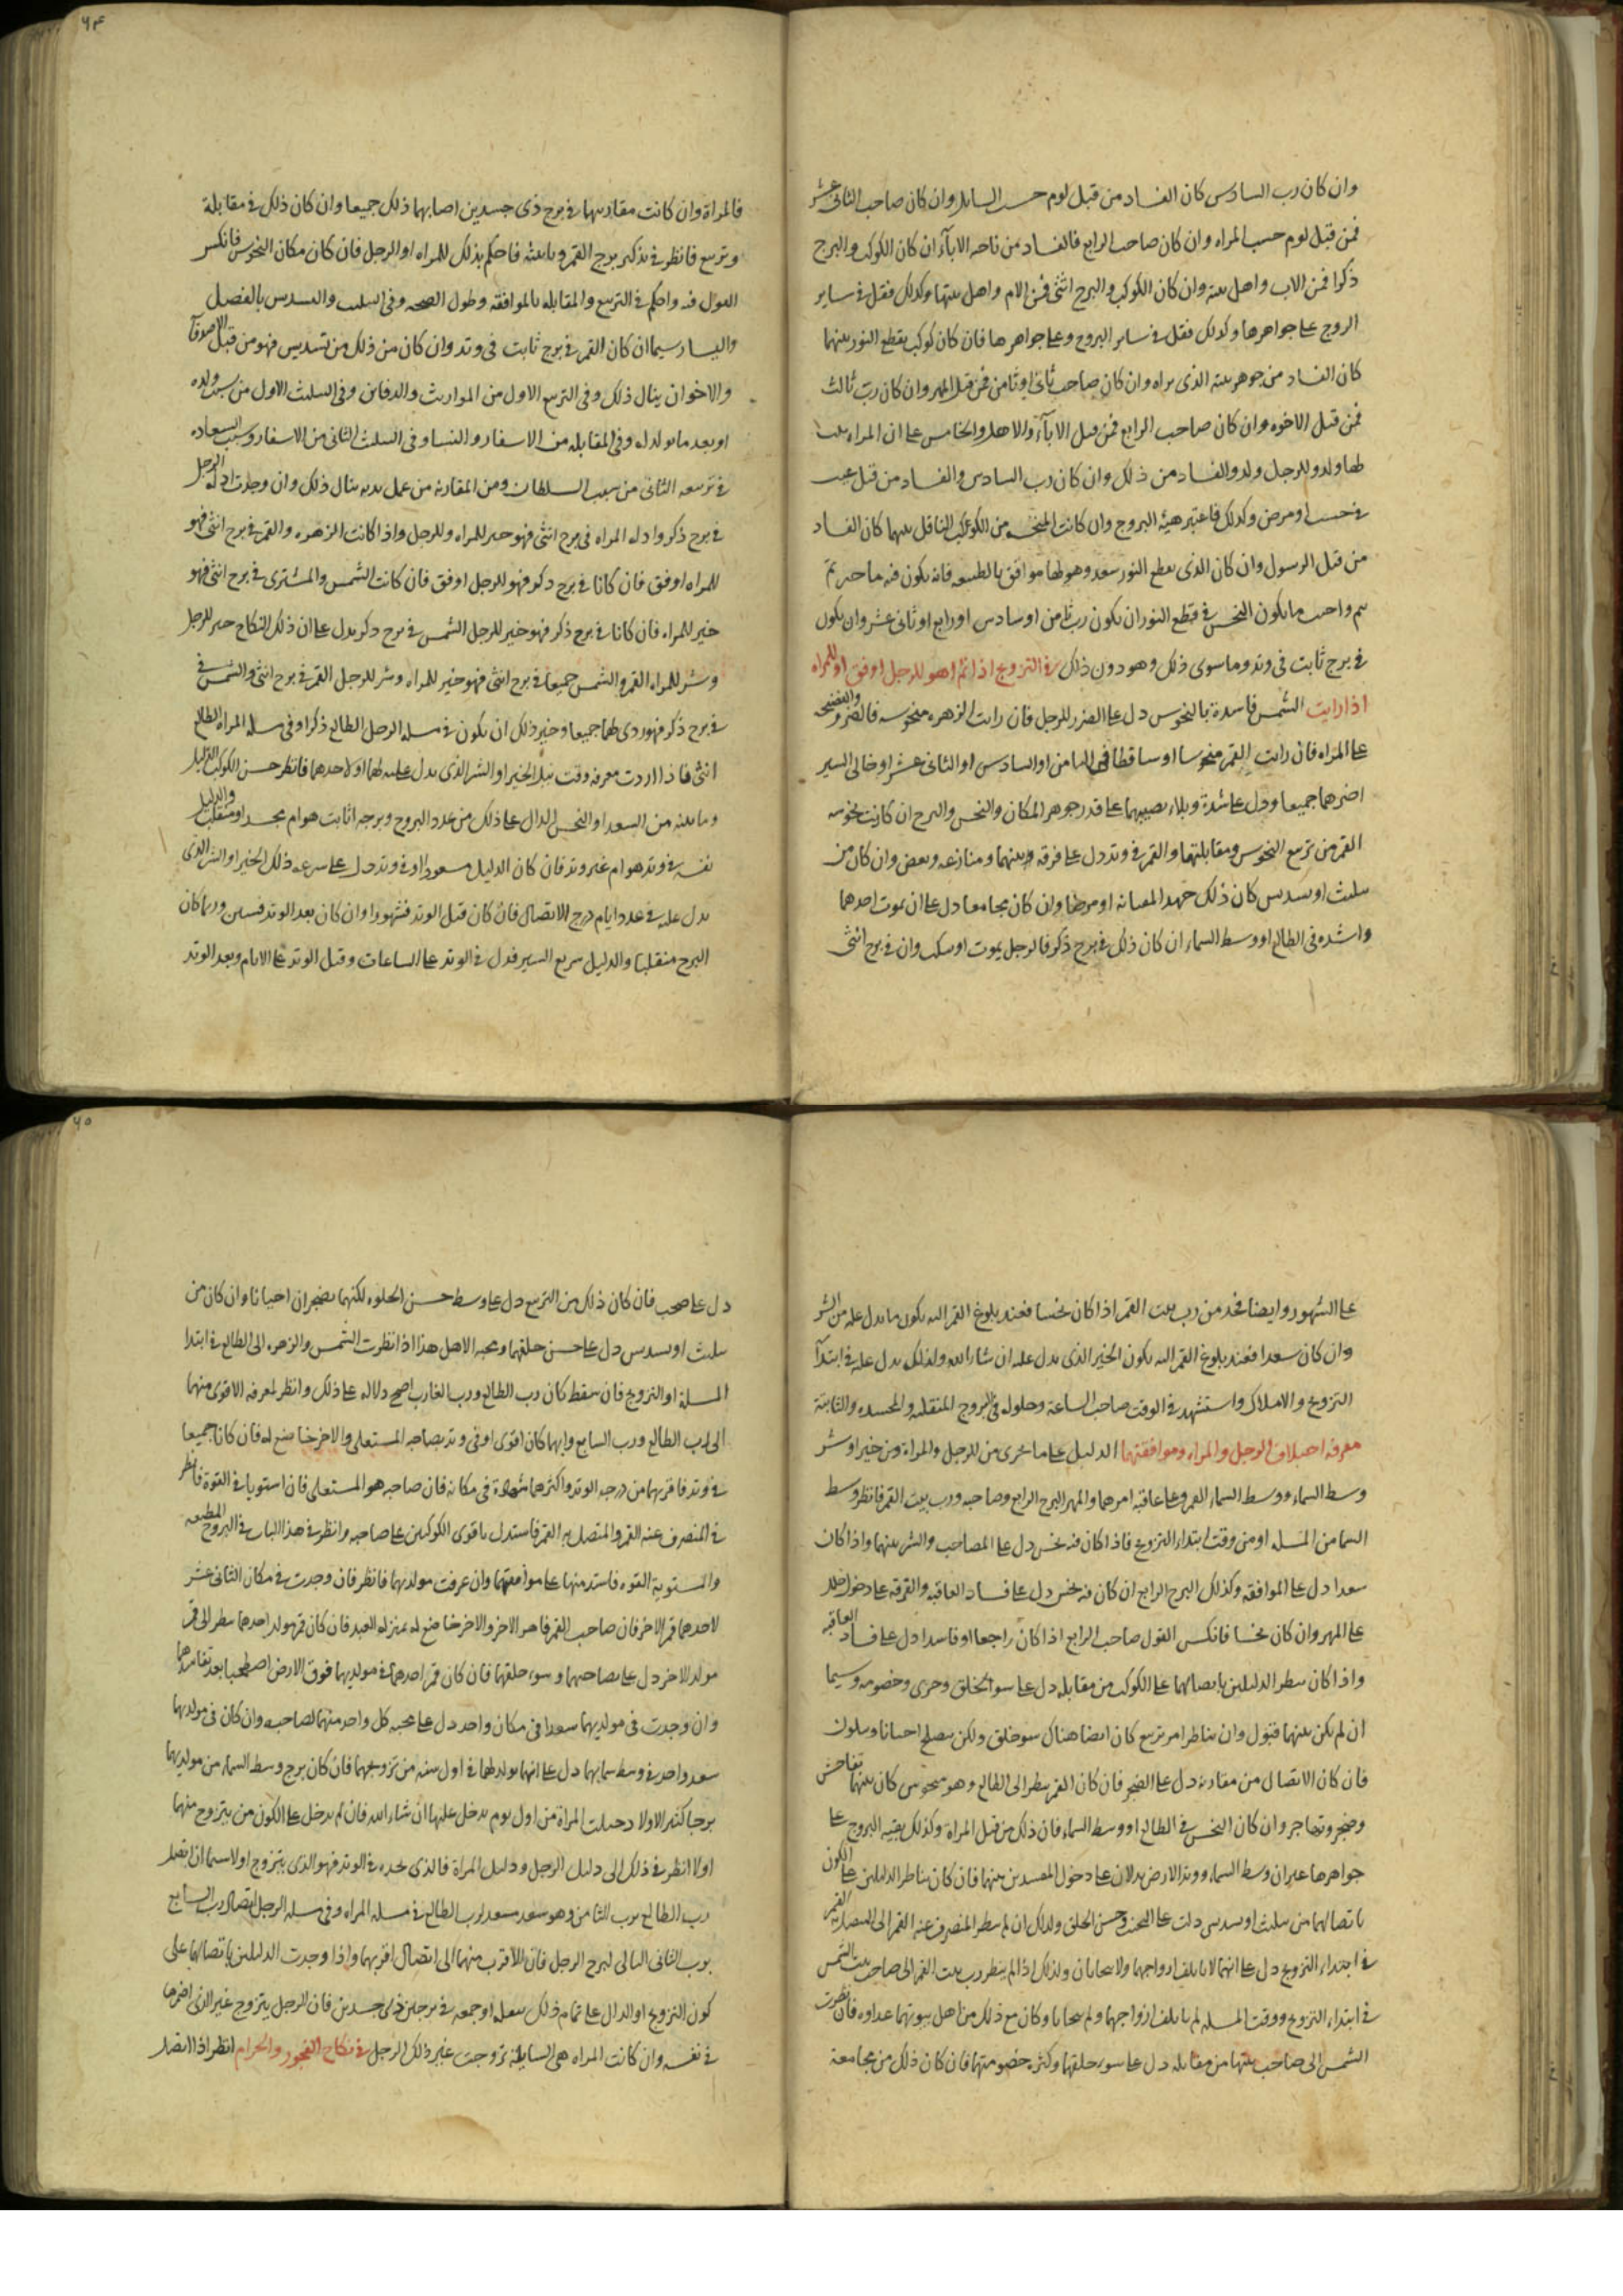 وان كان رب السادس كان الفساد من قبل لوم حسب السايل وان كان صاحب الثانى عشر
فمن قبل لوم حسب المراه وان كان صاحب الرابع فالفساد من ناحيه الابآء ان كان الكوكب والبرج
ذكرا فمن الاب واهل بيته وان كان الكوكب والبرج انثى فمن الام واهل بيتها وكذلك فقل فى ساير
البروج على جواهرها وكذلك فقل فى ساير البروج وعلى جواهرها فان كان كوكب يقطع النور بينهما
كان الفساد من جوهر بيته الذى يراه وان كان صاحب ثانى او ثامن فمن قبل المهر وان كان رب ثالث
فمن قبل الاخوه وان كان صاحب الرابع فمن قبل الابآء والاهل والخامس على ان المراه
لها ولد وللرجل ولد والفساد من ذلك وان كان رب السادس والفساد من قبل عيب
فى حسب او مرض وكذلك فاعتبر هيئه البروج وان كانت المنحسه من الكوكب الناقل بينهما كان الفساد
من قبل الرسول وان كان الذى يقطع النور سعد وهو لها موافق بالطبيعه فانه يكون فيه ما خير ثم
يتم واخبث ما يكون النحس فى قطع النور ان يكون رب ثامن او سادس او رابع او ثانى عشر وان يكون
فى برج ثابت فى وتد وما سوى ذلك وهو دون ذلك فى التزويج اذا تم اهو للرجل اوفق او للمراه
اذا رايت الشمس فاسدة بالنحوس دل على الضرر للرجل فان رايت الزهره منحوسه فالضرر والفضيحه
على المراه فان رايت القمر منحوسا او ساقطا فى الثامن او السادس او الثانى عشر او خالى السير
اضرهما جميعا ودل على شدة وبلاء يصيبهما على قدر جوهر المكان والنحس والبرج ان كانت نحوسه
القمر من تربيع النحوس ومقابلتها والقمر فى وتد دل على فرقه بينهما ومنازعه وبعض وان كان من
تثليث او تسديس كان ذلك جهد المعيشه او مرضا وان كان مجامعا دل على ان يموت احدهما
واشده فى الطالع او وسط السماء ان كان ذلك فى برج ذكر فالرجل يموت او ينكب وان فى برج انثى
فالمراة وان كانت مقارنتهما فى برج ذى جسدين اصابهما ذلك جميعا وان كان ذلك فى مقابلة
وتربيع فانظر فى تذكير برج القمر وتانيثه فاحكم بذلك للمراه او الرجل فان كان مكان النحوس فانكس
القول فيه واحكم فى التربيع والمقابله بالموافقه وطول الصحبه وفى التثليث والتسديس بالفضل
واليسار سيما ان كان القمر فى برج ثابت فى وتد وان كان من ذلك من تسديس فهو من قبل الاصدقآ
والاخوان ينال ذلك وفى التربيع الاول من المواريث والدفاين وفى التثليث الاول من سبب ولده
او بعد ما يولد له وفى المقابله من الاسفار والنسا وفى التثليث الثانى من الاسفار وسبب السعاده
فى تربيعه الثانى من سبب السلطان ومن المقارنه من عمل يديه ينال ذلك وان وجدت ادله الرجل
فى برج ذكر وادله المراه فى برج انثى فهو خير للمراه وللرجل واذا كانت الزهره والقمر فى برج انثى فهو
للمراه اوفق فان كانا فى برج ذكر فهو للرجل اوفق فان كانت الشمس والمشترى فى برج انثى فهو
خير للمراه فان كانا فى برج ذكر فهو خير للرجل الشمس فى برج ذكر يدل على ان ذلك النكاح خير للرجل
وشر للمراه القمر والشمس جميعا فى برج انثى فهو خير للمراه وشر للرجل القمر فى برج انثى والشمس فى
فى برج ذكر فهو ردى لهما جميعا وخير ذلك ان يكون فى مسله الرجل الطالع ذكرا وفى مسله المراه الطالع
انثى فاذا اردت معرفه وقت نيل الخير او الشر الذى يدل عليه لهما او لاحدهما فانظر حسن الكوكب الدليل
وما بينه من السعد او النحس الدال على ذلك من عدد البروج وبرجه اثابت هو ام مجسد او منقلب والدليل
نفسه فى وتد هو ام غير وتد فان كان الدليل مسعودا او فى وتد دل على سرعه ذلك الخير او الشر الذى
يدل عليه فى عدد ايام درج الاتصال فان كان قبل الوتد فشهورا وان كان بعد الوتد فسنين وربما كان
البرج منقلبا والدليل سريع السير فدل فى الوتد على الساعات وقبل الوتد على الايام وبعد الوتد
على الشهور وايضا فخذ من رب بيت القمر اذا كان نحسا فعند بلوغ القمر اليه يكون ما يدل عليه من الشر
وان كان سعدا فعند بلوغ القمر اليه يكون الخير الذى يدل عليه ان شا الله وكذلك يدل عليه فى ابتدآ
التزويج والاملاك واستشهد فى الوقت صاحب الساعة وحلوله فى البروج المنقلبه والمجسده والثابتة
معرفه اختلاف الرجل والمراه وموافقتهما الدليل على ما يجرى من للرجل والمراة من خير او شر
وسط السماء ووسط السماء القمر وعلى عاقبه امرهما والمهر البرج الرابع وصاحبه ورب بيت القمر فانظر وسط
السما من المسله او من وقت ابتداء التزويج فاذا كان فيه نحس دل على المصاخب والشر بينهما واذا كان
سعدا دل على الموافقه وكذلك البرج الرابع ان كان فيه نحس دل على فساد العاقبه والفرقه على دخول
على المهر وان كان نحسا فانكس القول صاحب الرابع اذا كان راجعا او فاسدا دل على فساد العاقبه
واذا كان ينظر الدليلين باتصالهما على الكوكب من مقابله دل على سو الخلق وخصومه وسيما
ان لم يكن بينهما قبول وان يناظرا من تربيع كان ايضا هناك سو خلق ولكن يصلح احيانا
فان كان الاتصال من مقارنه دل على الضجر فان كان القمر ينظر الى الطالع وهو منحوس كان بينهما تفاحش
وضجر وتهاجر وان كان النحس فى الطالع او وسط السماء فان ذلك من قبل المراة وكذلك بقيه البروج على
جواهرها غير ان وسط السماء ووتد الارض يدلان على دخول المفسدين بينهما فان كان يناظر الدليلين على الكون
باتصالهما من تثليث او تسديس دلت على وحسن الخلق وكذلك ان لم ينظر المنصرف عنه القمر الى المتصل به القمر
فى ابتداء التزويج دل على انهما لا ياتلف ازواجهما ولا يتحابان وكذلك اذا لم ينظر رب بيت القمر الى صاحب بيت الشمس
فى ابتداء التزويج ووقت المسله لم ياتلف ازواجهما ولم يتحابا وكان مع ذلك من اهل بيوتهما عداوه فان نظرت
الشمس الى صاحب بيتها من مقابله دل على سوء خلقهما وكثره خصومتهما فان كان ذلك من مجامعة
دل على صخب فان كان ذلك من التربيع دل على وسط حسن الخلق لكنهما يضجران احيانا وان كان من
تثليث او تسديس دل على حسن خلقهما ومحبه الاهل هذا اذا نظرت الشمس والزهره الى الطالع فى ابتدا
المسله او التزويج فان سقطا كان رب الطالع ورب الغارب اصح دلاله على ذلك وانظر لمعرفه الاقوى منهما
الى رب الطالع ورب السابع وايهما كان اقوى او فى وتد صاحبه المستعلى والاخر خاضع له فان كانا جميعا
فى وتد فاقربهما من درجه الوتد واكثرهما شهادة فى مكانه فان صاحبه هو المستعلى فان استويا فى القوة فانظر
فى المنصرف عنه القمر والمتصل به القمر فاستدل باقوى الكوكبين على صاحبه وانظر فى هذا الباب فى البروج المطيعه
والمستوية القوه فاستد منهما على موافقتهما وان عرفت مولديهما فانظر فان وجدت فى مكان الثانى عشر
لاحدهما قمر الاخر فان صاحب القمر قاهر الاخر والاخر خاضع له بمنزله العبد فان كان قمر مولد احدهما ينظر الى قمر
مولد الاخر دل على تصاحبهما وسوء خلقهما فان كان قمر احدهما فى مولديهما فوق الارض اصطلحا بعد
وان وجدت فى مولديهما سعدا فى مكان واحد دل على محبه كل واحد منهما لصاحبه وان كان فى مولديهما
سعد واحد فى وسط سمايهما دل على انهما يولد لهما فى اول سنه من تزويجهما فان كان برج وسط السماء من مولديهما
برجا كثير الاولاد حبلت المراة من اول يوم يدخل عليها ان شاء الله فان لم يدخل على الكون من يتزوج منهما
اولا انظر فى ذلك الى دليل الرجل ودليل المراة فالذى تجده فى الوتد فهو الذى يتزوج اولا سيما ان اتصل
رب الطالع برب الثامن وهو سعد مسعد لرب الطالع فى مسله المراه وفى مسله الرجل اتصال رب السابع
برب الثانى التالى لبرج الرجل فان الاقرب منهما الى اتصال اقربهما واذا وجدت الدليلين باتصالهما على
كون التزويج او الدال على تمام ذلك بنقله او جمعه فى برجين ذوى جسدين فان الرجل يتزوج غير الذى اضمرها
فى نفسه وان كانت المراه هى السايله تزوجت غير ذلك الرجل فى نكاح الفجور والحرام انظر اذا اتصل